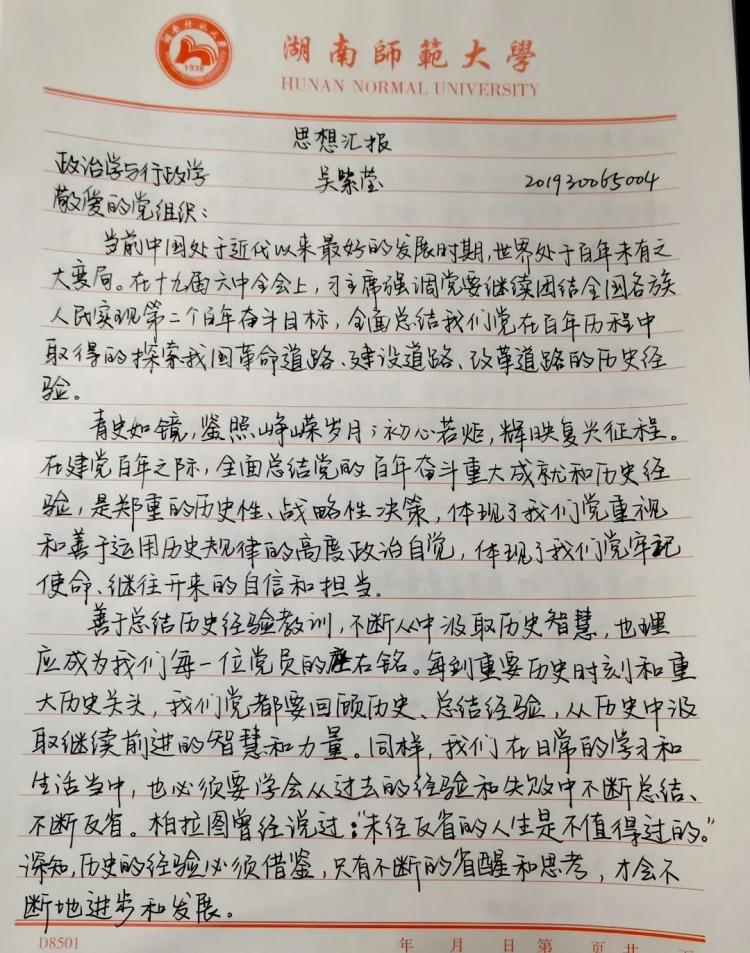 1938
湖南師範大學
HUNAN NORMAL UNIVERSITY
思想汇报
政治学与行政学 吴紫莹 201930065004
敬爱的党组织：
当前中国处于近代以来最好的发展时期，世界处于百年未有之
大变局。在十九届六中全会上，习主席强调党要继续团结全国各族
人民实现第二个百年奋斗目标，全面总结我们党在百年历程中
取得的探索我国革命道路、建设道路、改革道路的历史经
验。
青史如镜，鉴照峥嵘岁月；初心若炬，辉映复兴征程。
在建党百年之际，全面总结党的百年奋斗重大成就和历史经
验，是郑重的历史性、战略性决策，体现了我们党重视
和善于运用历史规律的高度政治自觉，体现了我们党牢记
使命、继往开来的自信和担当。
善于总结历史经验教训，不断从中汲取历史智慧，也理
应成为我们每一位党员的座右铭。每到重要历史时刻和重
大历史关头，我们党都要回顾历史、总结经验，从历史中汲
取继续前进的智慧和力量。同样，我们在日常的学习和
生活当中，也必须要学会从过去的经验和失败中不断总结、
不断反省。柏拉图曾经说过：“未经反省的人生是不值得过的。”
深知，历史的经验必须借鉴，只有不断的省醒和思考，才会不
断地进步和发展。
D8501 年 月 日 第 页 共 页